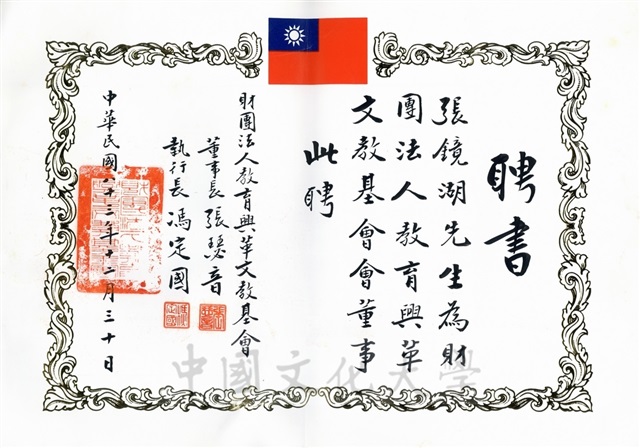 聘書
張鏡湖先生為財
團法人教育興革
文教基會會董事
此聘
財團法人教育興革文教基會
董事長張瑟音
執行長馮定國
中華民國八十三年十二月三十日
中國文化大學